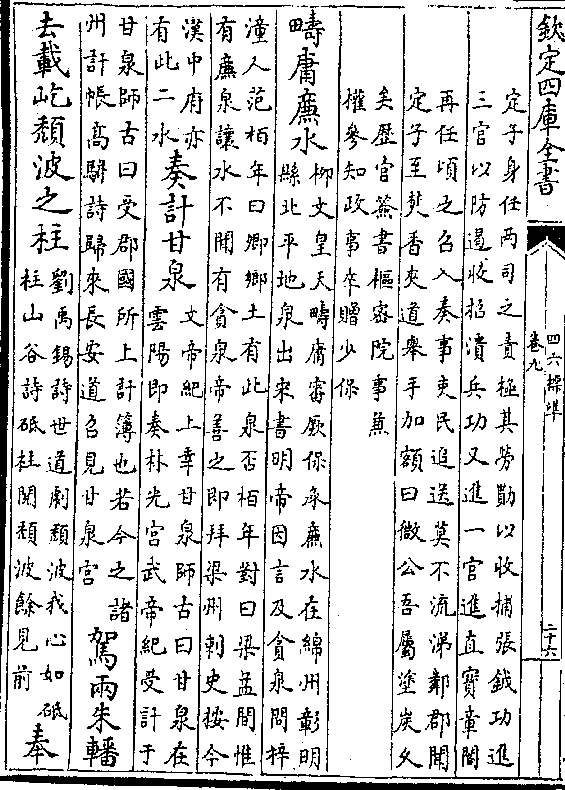 欽定四庫全書
四六標準
卷九
二十六
定子身任两司之責極其勞勩以收捕張鉞功進
三官以防遏收招潰兵功又進一官進直寳章閣
再任頃之召入奏事吏民追送莫不流涕鄰郡聞
定子至焚香夾道舉手加額曰微公吾屬塗炭久
矣歴官簽書樞宻院事兼
權參知政事卒贈少保
疇庸㢘水 柳文皇天疇庸審厥保承㢘水在綿州彰明
縣北平地泉出宋書明帝因言及貪泉問梓
潼人范栢年曰卿鄉土有此泉否栢年對曰梁益間惟
有㢘泉讓水不聞有貪泉帝善之即拜梁州刺史按今
漢中府亦
有此二水 奏計甘泉 文帝紀上幸甘泉師古曰甘泉在
雲陽即秦林光宫武帝紀受計于
甘泉師古曰受郡國所上計簿也若今之諸
州計帳高駢詩歸來長安道召見甘泉宫 駕兩朱轓
去載屹頽波之柱 劉禹錫詩世道劇頽波我心如砥
柱山谷詩砥柱閲頽波餘見前 奉